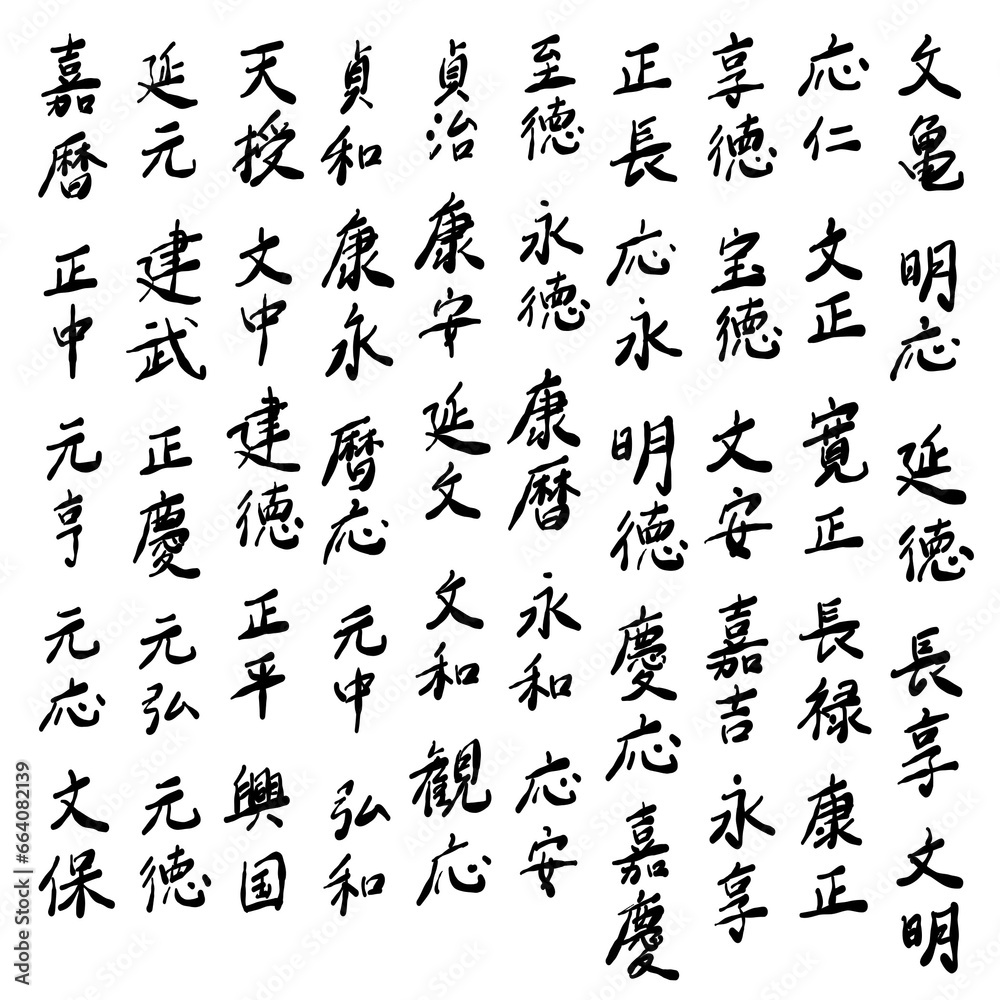 文亀 明応 延徳 長享 文明
応仁 文正 寛正 長禄 康正
享徳 宝徳 文安 嘉吉 永享
正長 応永 明徳 慶応 嘉慶
至徳 永徳 康暦 永和 応安
貞治 康安 延文 文和 観応
貞和 康永 暦応 元中 弘和
天授 文中 建徳 正平 興国
延元 建武 正慶 元弘 元徳
嘉暦 正中 元亨 元応 文保
Adobe Stock | #664082139